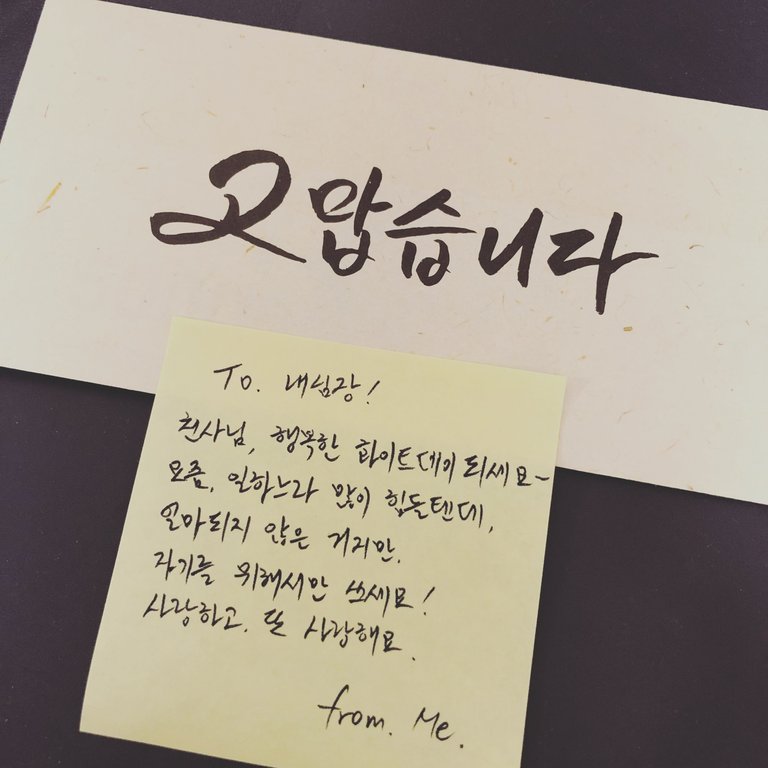 고맙습니다
To. 내심장!
천사님, 행복한 화이트데이 되세요~
요즘, 일하느라 많이 힘들텐데,
얼마되지 않은 거지만,
자기를 위해서만 쓰세요!
사랑하고, 또 사랑해요.
from. Me.